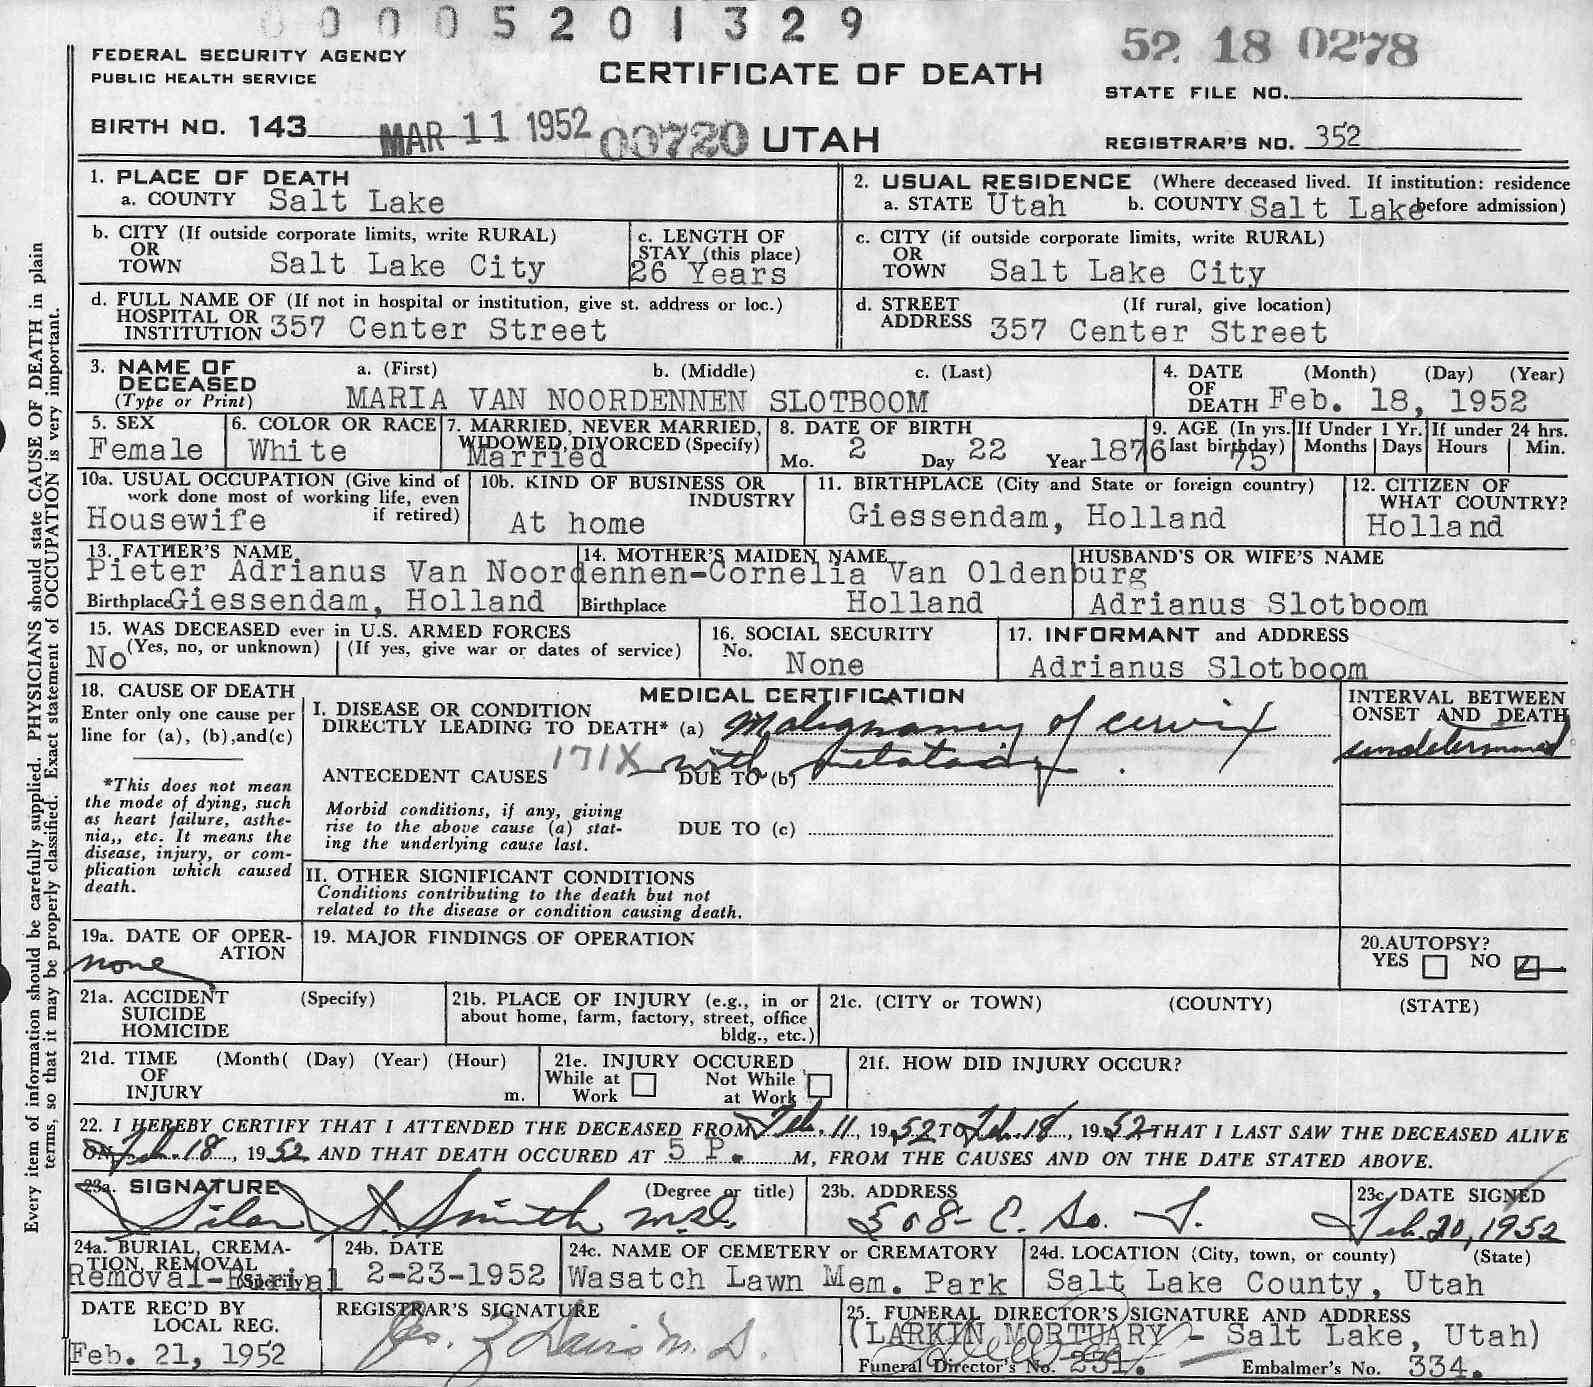 0 0 0 5 2 0 1 3 2 9
FEDERAL SECURITY AGENCY
PUBLIC HEALTH SERVICE
CERTIFICATE OF DEATH
52 18 0278
STATE FILE NO.
BIRTH NO. 143
MAR 11 1952
00720 UTAH
REGISTRAR'S NO. 352
1. PLACE OF DEATH
a. COUNTY Salt Lake
2. USUAL RESIDENCE (Where deceased lived. If institution: residence
a. STATE Utah b. COUNTY Salt Lake before admission)
b. CITY (If outside corporate limits, write RURAL)
OR
TOWN Salt Lake City
c. LENGTH OF
STAY (this place)
26 Years
c. CITY (if outside corporate limits, write RURAL)
OR
TOWN Salt Lake City
d. FULL NAME OF (If not in hospital or institution, give st. address or loc.)
HOSPITAL OR
INSTITUTION 357 Center Street
d. STREET (If rural, give location)
ADDRESS 357 Center Street
3. NAME OF
DECEASED
(Type or Print)
a. (First) b. (Middle) c. (Last)
MARIA VAN NOORDENNEN SLOTBOOM
4. DATE (Month) (Day) (Year)
OF
DEATH Feb. 18, 1952
5. SEX
Female
6. COLOR OR RACE
White
7. MARRIED, NEVER MARRIED,
WIDOWED, DIVORCED (Specify)
Married
8. DATE OF BIRTH
Mo. 2 Day 22 Year 1876
9. AGE (In yrs.
last birthday)
75
If Under 1 Yr.
Months Days
If under 24 hrs.
Hours Min.
10a. USUAL OCCUPATION (Give kind of
work done most of working life, even
if retired)
Housewife
10b. KIND OF BUSINESS OR
INDUSTRY
At home
11. BIRTHPLACE (City and State or foreign country)
Giessendam, Holland
12. CITIZEN OF
WHAT COUNTRY?
Holland
13. FATHER'S NAME
14. MOTHER'S MAIDEN NAME
HUSBAND'S OR WIFE'S NAME
Pieter Adrianus Van Noordennen-Cornelia Van Oldenburg
Birthplace Giessendam, Holland
Birthplace Holland
Adrianus Slotboom
15. WAS DECEASED ever in U.S. ARMED FORCES
(Yes, no, or unknown) (If yes, give war or dates of service)
No
16. SOCIAL SECURITY
No. None
17. INFORMANT and ADDRESS
Adrianus Slotboom
18. CAUSE OF DEATH
Enter only one cause per
line for (a), (b),and(c)
*This does not mean
the mode of dying, such
as heart failure, asthe-
nia,, etc. It means the
disease, injury, or com-
plication which caused
death.
MEDICAL CERTIFICATION
I. DISEASE OR CONDITION
DIRECTLY LEADING TO DEATH* (a) Malignancy of cervix
171X with
ANTECEDENT CAUSES DUE TO (b)
Morbid conditions, if any, giving
rise to the above cause (a) stat-
ing the underlying cause last.
DUE TO (c)
INTERVAL BETWEEN
ONSET AND DEATH
undetermined
II. OTHER SIGNIFICANT CONDITIONS
Conditions contributing to the death but not
related to the disease or condition causing death.
19a. DATE OF OPER-
ATION
none
19. MAJOR FINDINGS OF OPERATION
20.AUTOPSY?
YES NO
21a. ACCIDENT (Specify)
SUICIDE
HOMICIDE
21b. PLACE OF INJURY (e.g., in or
about home, farm, factory, street, office
bldg., etc.)
21c. (CITY or TOWN) (COUNTY) (STATE)
21d. TIME (Month( (Day) (Year) (Hour)
OF
INJURY m.
21e. INJURY OCCURED
While at Work Not While at Work
21f. HOW DID INJURY OCCUR?
22. I HEREBY CERTIFY THAT I ATTENDED THE DECEASED FROM Feb. 11, 1952 TO Feb. 18, 1952 THAT I LAST SAW THE DECEASED ALIVE
ON Feb. 18, 1952 AND THAT DEATH OCCURED AT 5 P. M, FROM THE CAUSES AND ON THE DATE STATED ABOVE.
23a. SIGNATURE (Degree or title)
Silas S. Smith M.D.
23b. ADDRESS
508- E. So. T.
23c. DATE SIGNED
Feb. 20, 1952
24a. BURIAL, CREMA-
TION, REMOVAL
(Specify)
Removal-Burial
24b. DATE
2-23-1952
24c. NAME OF CEMETERY or CREMATORY
Wasatch Lawn Mem. Park
24d. LOCATION (City, town, or county) (State)
Salt Lake County, Utah
DATE REC'D BY
LOCAL REG.
Feb. 21, 1952
REGISTRAR'S SIGNATURE
Davis M. D.
25. FUNERAL DIRECTOR'S SIGNATURE AND ADDRESS
(LARKIN MORTUARY - Salt Lake, Utah)
Funeral Director's No. 231. Embalmer's No. 334.
Every item of information should be carefully supplied. PHYSICIANS should state CAUSE OF DEATH in plain
terms, so that it may be properly classified. Exact statement of OCCUPATION is very important.